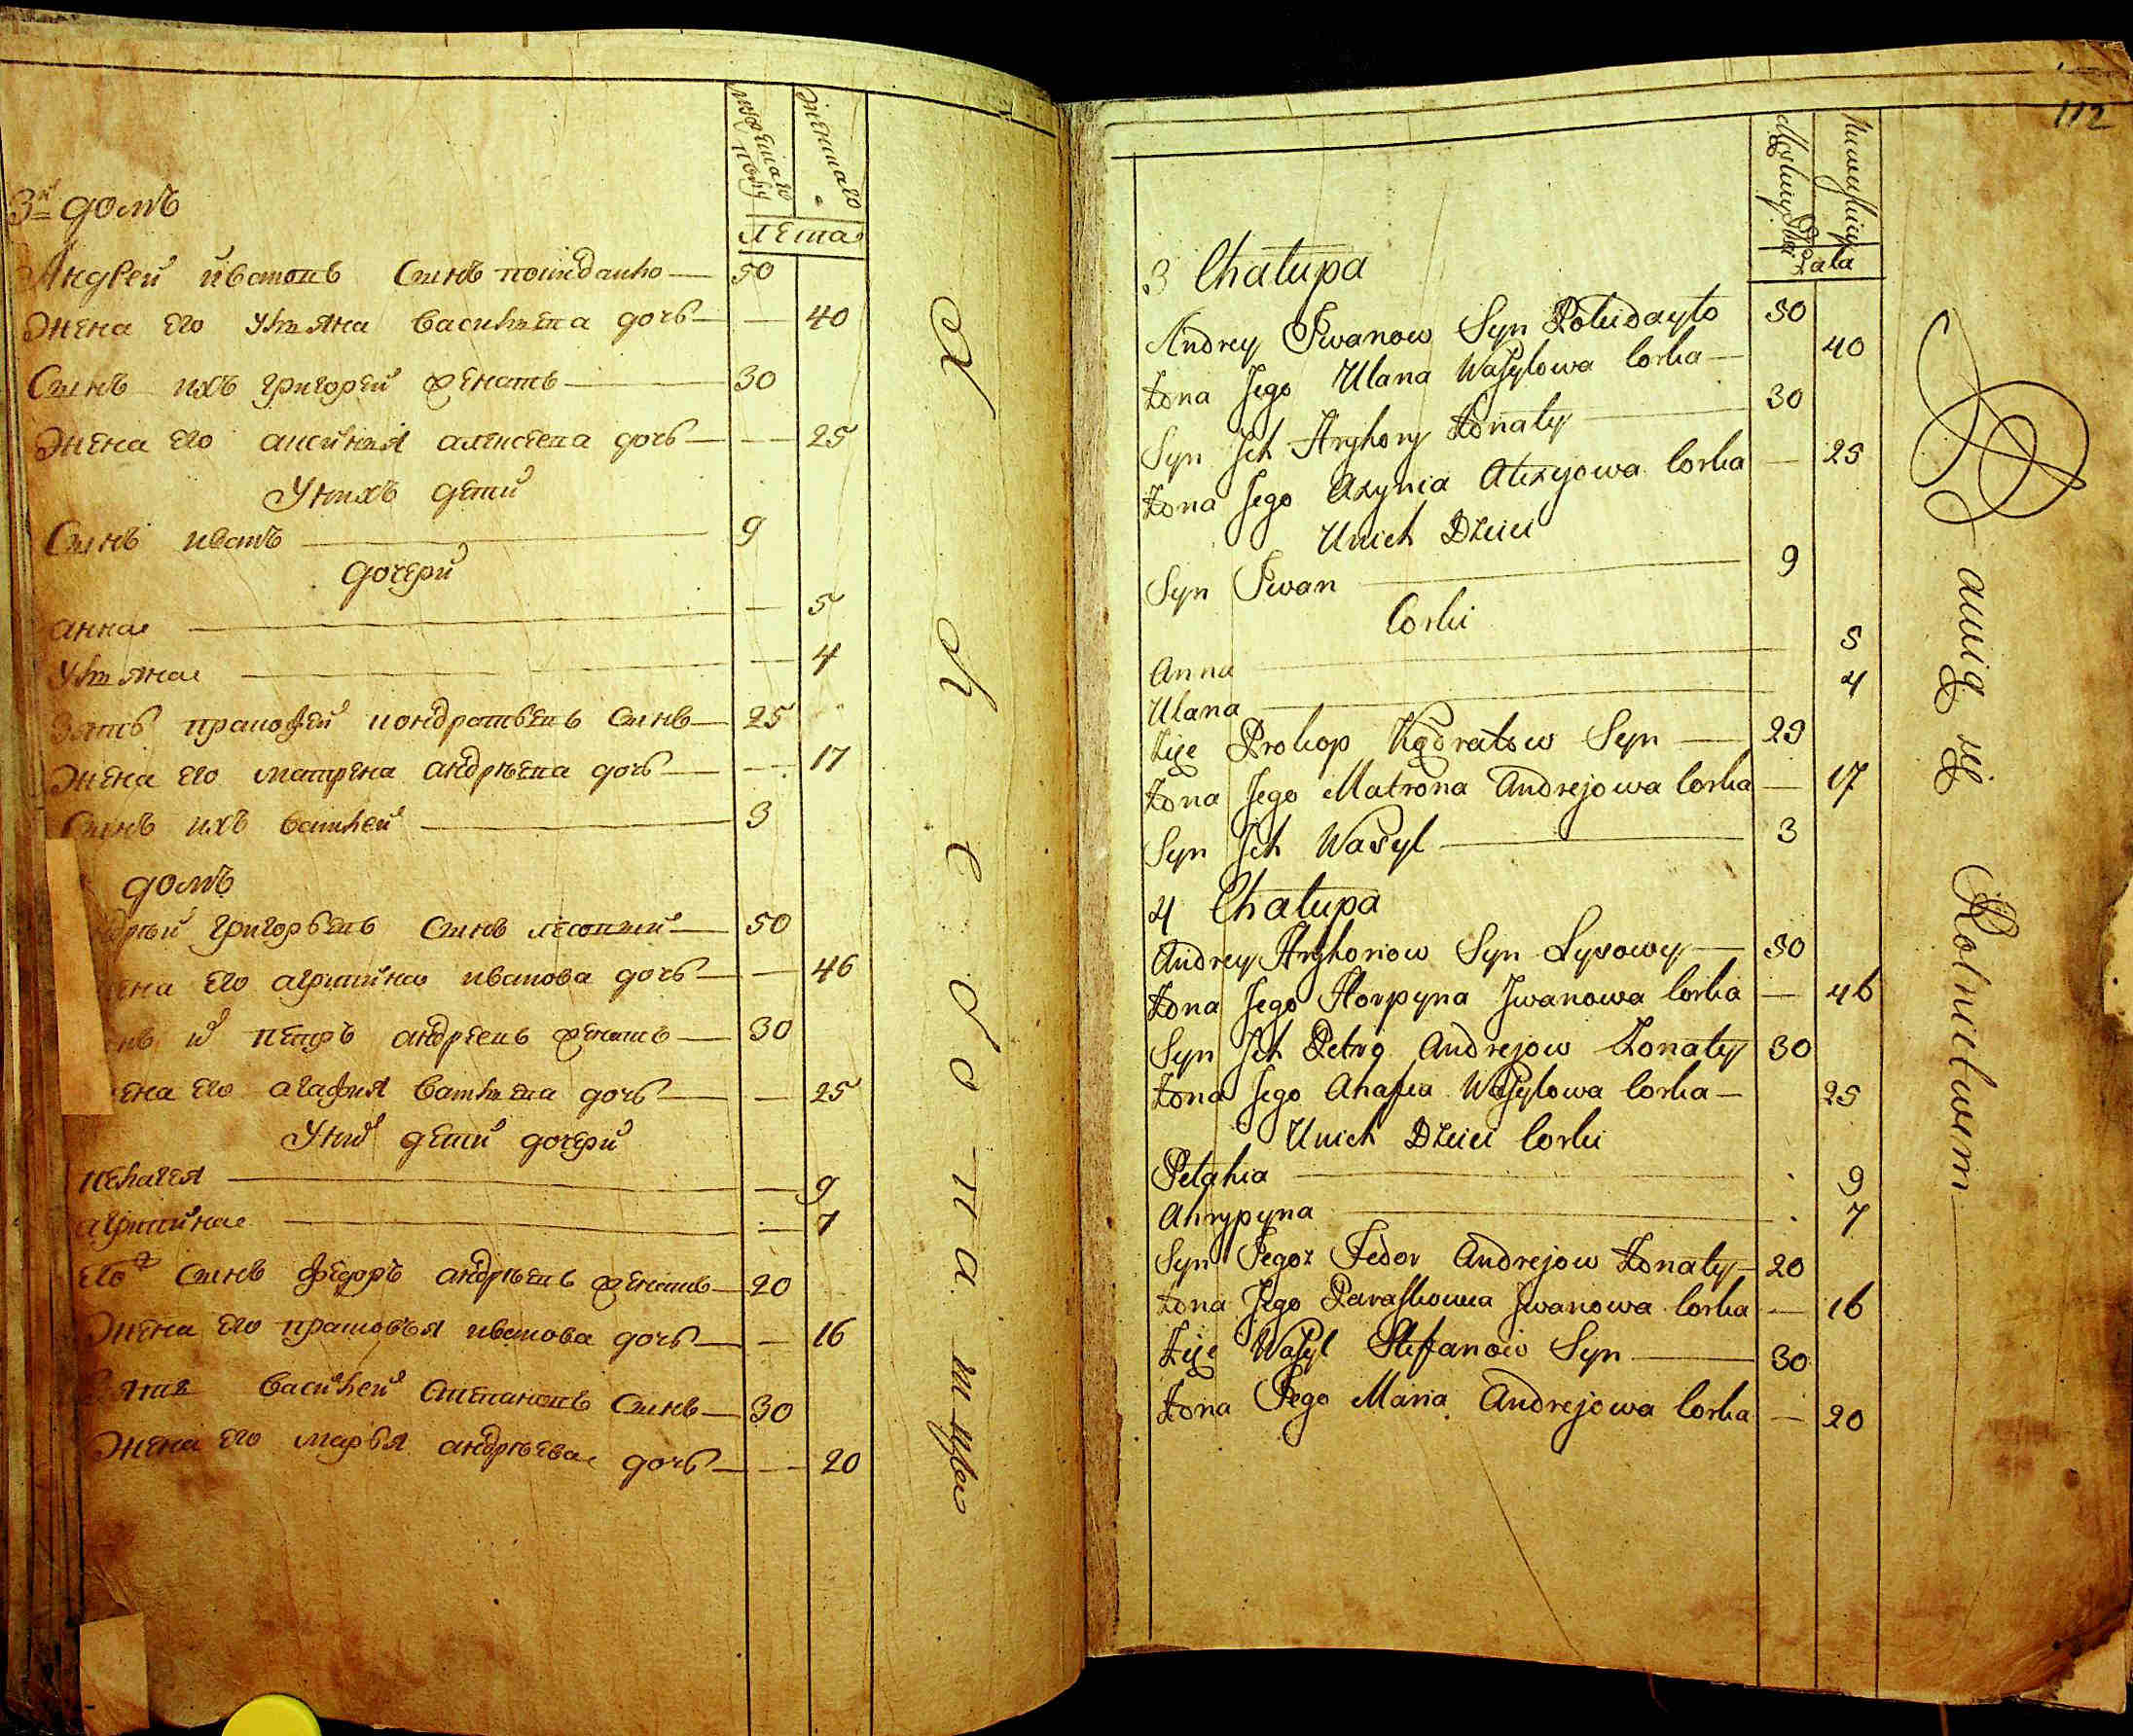 3й домъ
мужеска полу
женска
лета
Андрей ивановъ Сынъ полидайко — 50
Жена Его Ульяна василиева дочь — — 40
Сынъ ихъ григорей женатъ — 30
Жена Его аксиния алексеева дочь — — 25
У нихъ дети
Сынъ иванъ — 9
дочери
анна — — 5
Ульяна — — 4
Зять прокофей кондратьевъ Сынъ — 25
Жена Его матрена андрѣева дочь — — 17
Сынъ ихъ василей — 3
домъ
григорьевъ Сынъ лесовий — 50
Его агрипина иванова дочь — — 46
петръ андреевъ женатъ — 30
Его агафия василиева дочь — — 25
У них дети дочери
пелагея — — 9
агрипина — — 7
Его ж Сынъ федоръ андрѣевъ женатъ — 20
Жена Его прасковья иванова дочь — — 16
Зять василей степановъ Сынъ — 30
Жена Его марья андрѣева дочь — — 20
112
Lata
3 Chałupa
Andrey Iwanow Syn Poludayko 50
Żona Jego Ulana Wasylowa Corka — 40
Syn Ich Hryhory Żonaty — 30
Żona Jego Axynia Alexyowa Corka — 25
Unich Dzieci
Syn Iwan — 9
Corki
Anna — 5
Ulana — 4
Zięć Prokop Kądratow Syn — 29
Żona Jego Matrona Andrejowa Corka — 17
Syn Ich Wasyl — 3
4 Chałupa
Andrey Hryhorow Syn Lysowy — 50
Żona Jego Horpyna Iwanowa Corka — 46
Syn Ich Petro Andrejow Żonaty 30
Żona Jego Ahafia Wasylowa Corka — 25
Unich Dzieci Corki
Pelahia — 9
Ahrypyna — 7
Syn Jegoż Fedor Andrejow Żonaty — 20
Żona Jego Paraskowia Iwanowa Corka — 16
Zięć Wasyl Stefanow Syn — 30
Żona Jego Maria Andrejowa Corka — 20
Rolnictwem